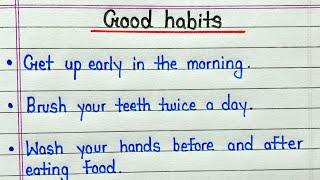 Good habits
• Get up early in the morning.
• Brush your teeth twice a day.
• Wash your hands before and after
eating food.